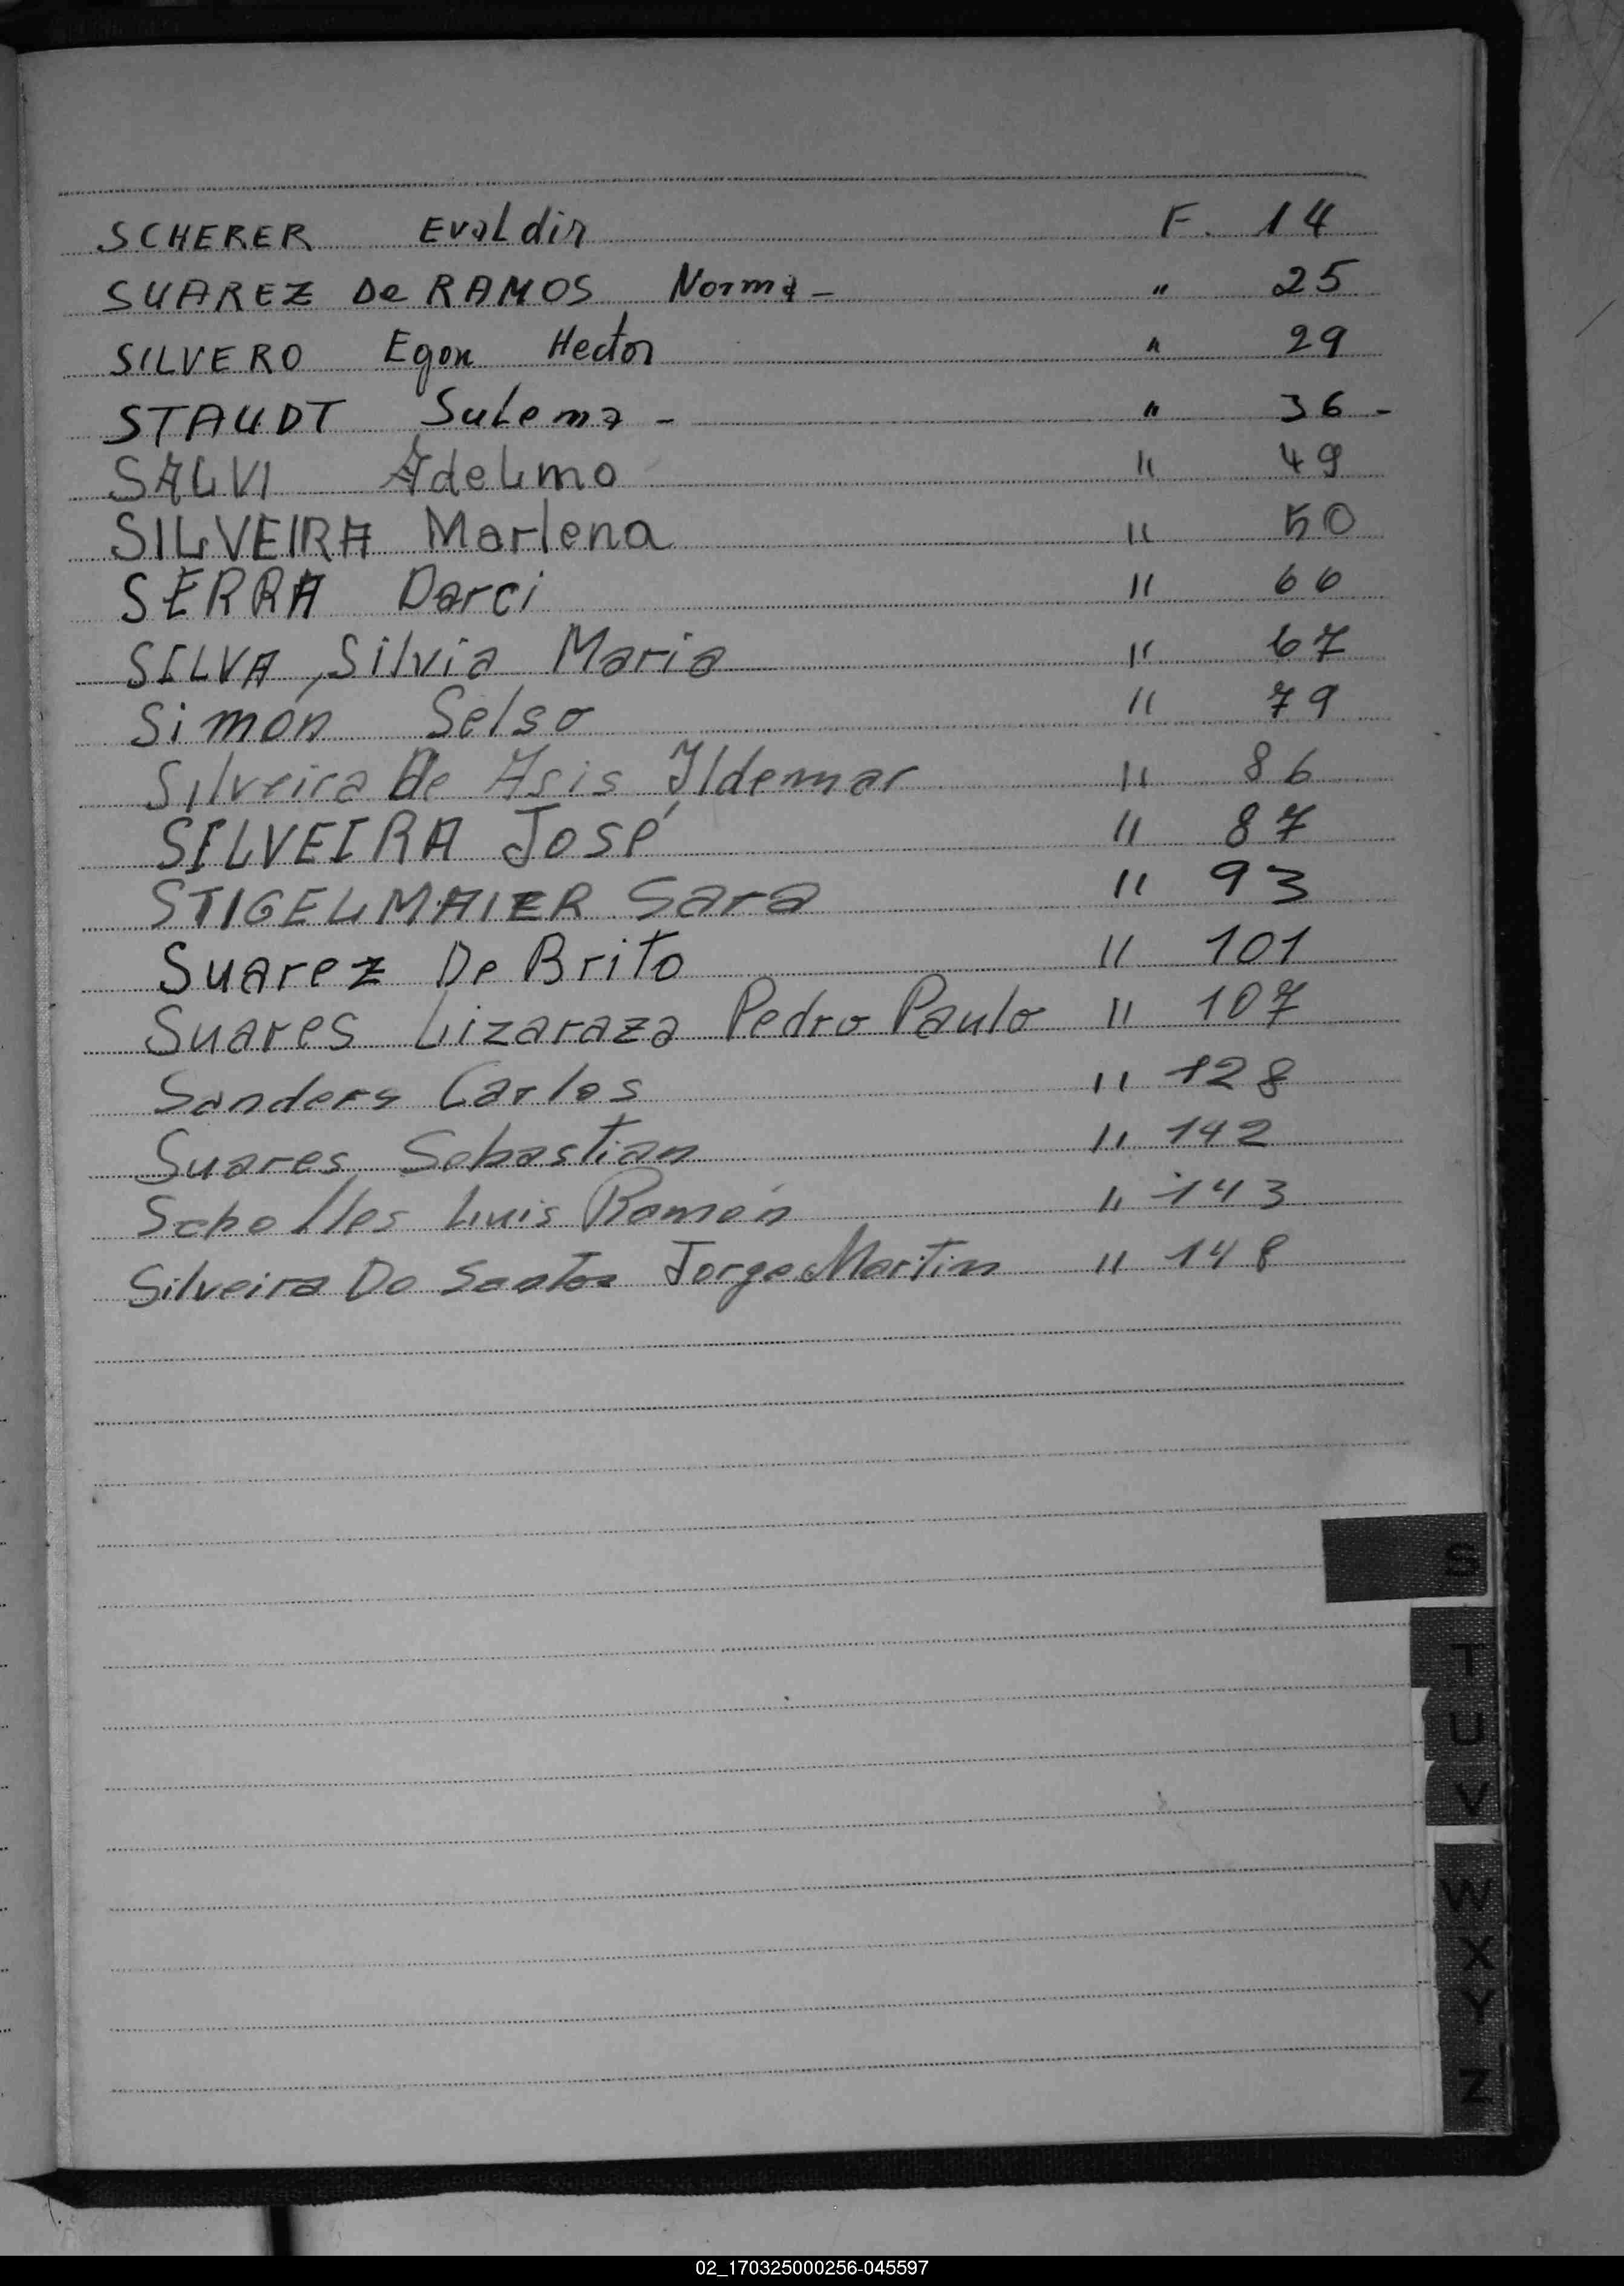 SCHERER Evaldir F. 14
SUAREZ De RAMOS Norma - " 25
SILVERO Egon Hector " 29
STAUDT Sulema - " 36 -
SALVI Adelmo " 49
SILVEIRA Marlena " 50
SERRA Darci " 66
SILVA, Silvia Maria " 67
Simón Selso " 79
Silveira De Asis Ildemar " 86
SILVEIRA José " 87
STIGELMAIER Sara " 93
Suarez De Brito " 101
Suares Lizaraza Pedro Paulo " 107
Sanders Carlos " 128
Suares Sebastian " 142
Scholles Luis Ramón " 143
Silveira Do Santos Jorge Martin " 148
S
T
U
V
W
X
Y
Z
02_170325000256-045597